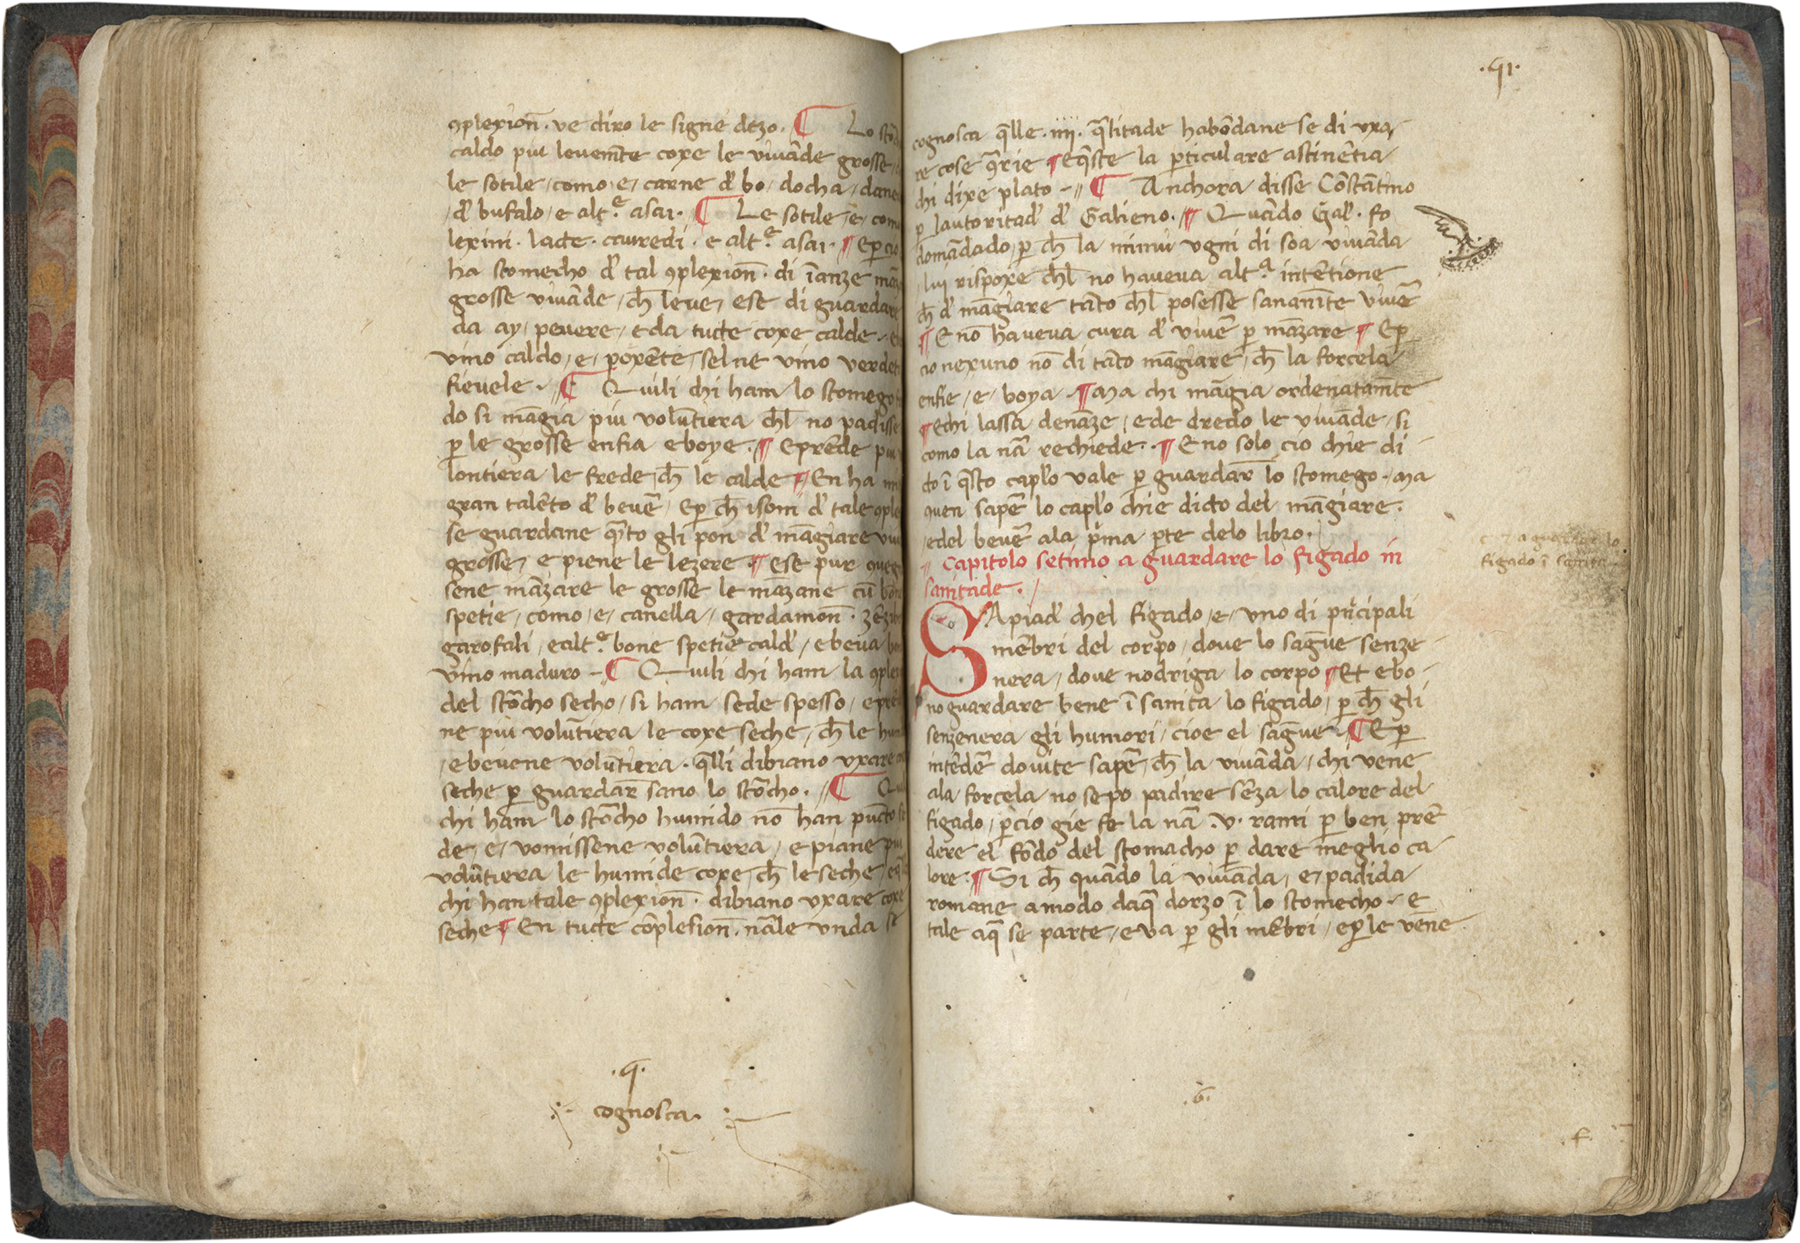 ↄplexioñ · ve diro le signe dezo · ¶ Lo
caldo piu levem̃te coxe le vivãde grosse
le sotile como e carne đ bo docha
đ bufalo e alt.ᵉ asai · ¶ Le sotile e
lexini · lacte · cavredi · e alt.ᵉ asai · ¶ E ꝑ
ha stomecho đ tal ↄplexioñ · di ĩanze
grosse vivãde ch̃ leve ese di guardar
da ay pevere e da tucte coxe calde
vino caldo e poxẽte sel ne vino verde
fievele · ¶ Quili chi ham lo stomego
do si mãgia piu volũtiera chel no padisse
ꝑ le grosse enfia e boye · ¶ E prẽde
lontiera le frede ch̃ le calde ¶ En ha
gran talẽto đ bevẽ · E ꝑ ch̃ isom đ tale
se guardane q̃to gli pon đ mãgiare
grosse e piene le lezere · ¶ ese pur
sene mãzare le grosse le mãzane cũ
spetie como e canella gardamoñ ·
garofali e alt.ᵉ bone spetie calđ e beva
vino maduro · ¶ Quili chi ham la
del stõcho secho si ham sede spesso
ne piu volũtiera le coxe seche ch̃ le
e bevene volũtiera · q̃lli dibiano vxare
seche ꝑ guardar sano lo stõcho · ¶
chi ham lo stõcho humido nõ han puncto
de e vomissene volũtiera e piane
volũtiera le humide coxe ch̃ le seche
chi han tale ↄplexioñ · dibiano vxare
seche ¶ En tucte cõplesioñ · nãle vnda se
·q·
cognosca ·
· 41 ·
cognosca q̃lle · iiii · q̃litade habõdane se di vxa
re cose ↄ̃rie ¶ E q̃ste la ꝑticulare astinẽtia
chi dixe plato · ¶ Anchora disse Cõstãtino
ꝑ lautoritađ đ Galieno · ¶ Quãdo Gal̃ · fo
domãdado ꝑ ch̃ la minui vgni di soa vivãda
lui rispoxe chel no haveva alt.ᵃ intẽtione
ch̃ đ mãgiare tãto chel posesse sanam̃te vivẽ
¶ E nõ haveva cura đ vivẽ ꝑ mãzare ¶ E ꝑ
cio nexuno nõ di tãto mãgiare ch̃ la forcela
enfie e boya · ¶ Ma chi mãgia ordenatam̃te
¶ E chi lassa denãze e de dredo le vivãde si
como la nã rechiede · ¶ E no solo cio chie di
cto ĩ q̃sto caplo vale ꝑ guardar lo stomego · ma
quen sapẽ lo caplo chie dicto del mãgiare ·
e del bevẽ ala p̃ma ꝑte delo libro ·
Capitolo setimo a guardare lo figado in
sanitade ·
SApiađ chel figado e uno di principali
mẽbri del corpo dove lo sãgue senze
nera dove nodriga lo corpo ¶ Et e bo
no guardare bene ĩ sanita lo figado ꝑ ch̃ gli
senzenera gli humori cioe el sãgue · ¶ E ꝑ
intẽdẽ dovite sapẽ ch̃ la vivãda chi vene
ala forcela no se po padire sẽza lo calore del
figado ꝑcio gie fe la nã · v · rami ꝑ ben prẽ
dere el fõdo del stomacho ꝑ dare meglio ca
lore · ¶ Si ch̃ quãdo la vivãda e padida
romane a modo daq̃ dorzo ĩ lo stomecho · e
tale aq̃ se parte e va ꝑ gli mẽbri e ꝑ le vẽne
figado ĩ sanita
· 6 ·